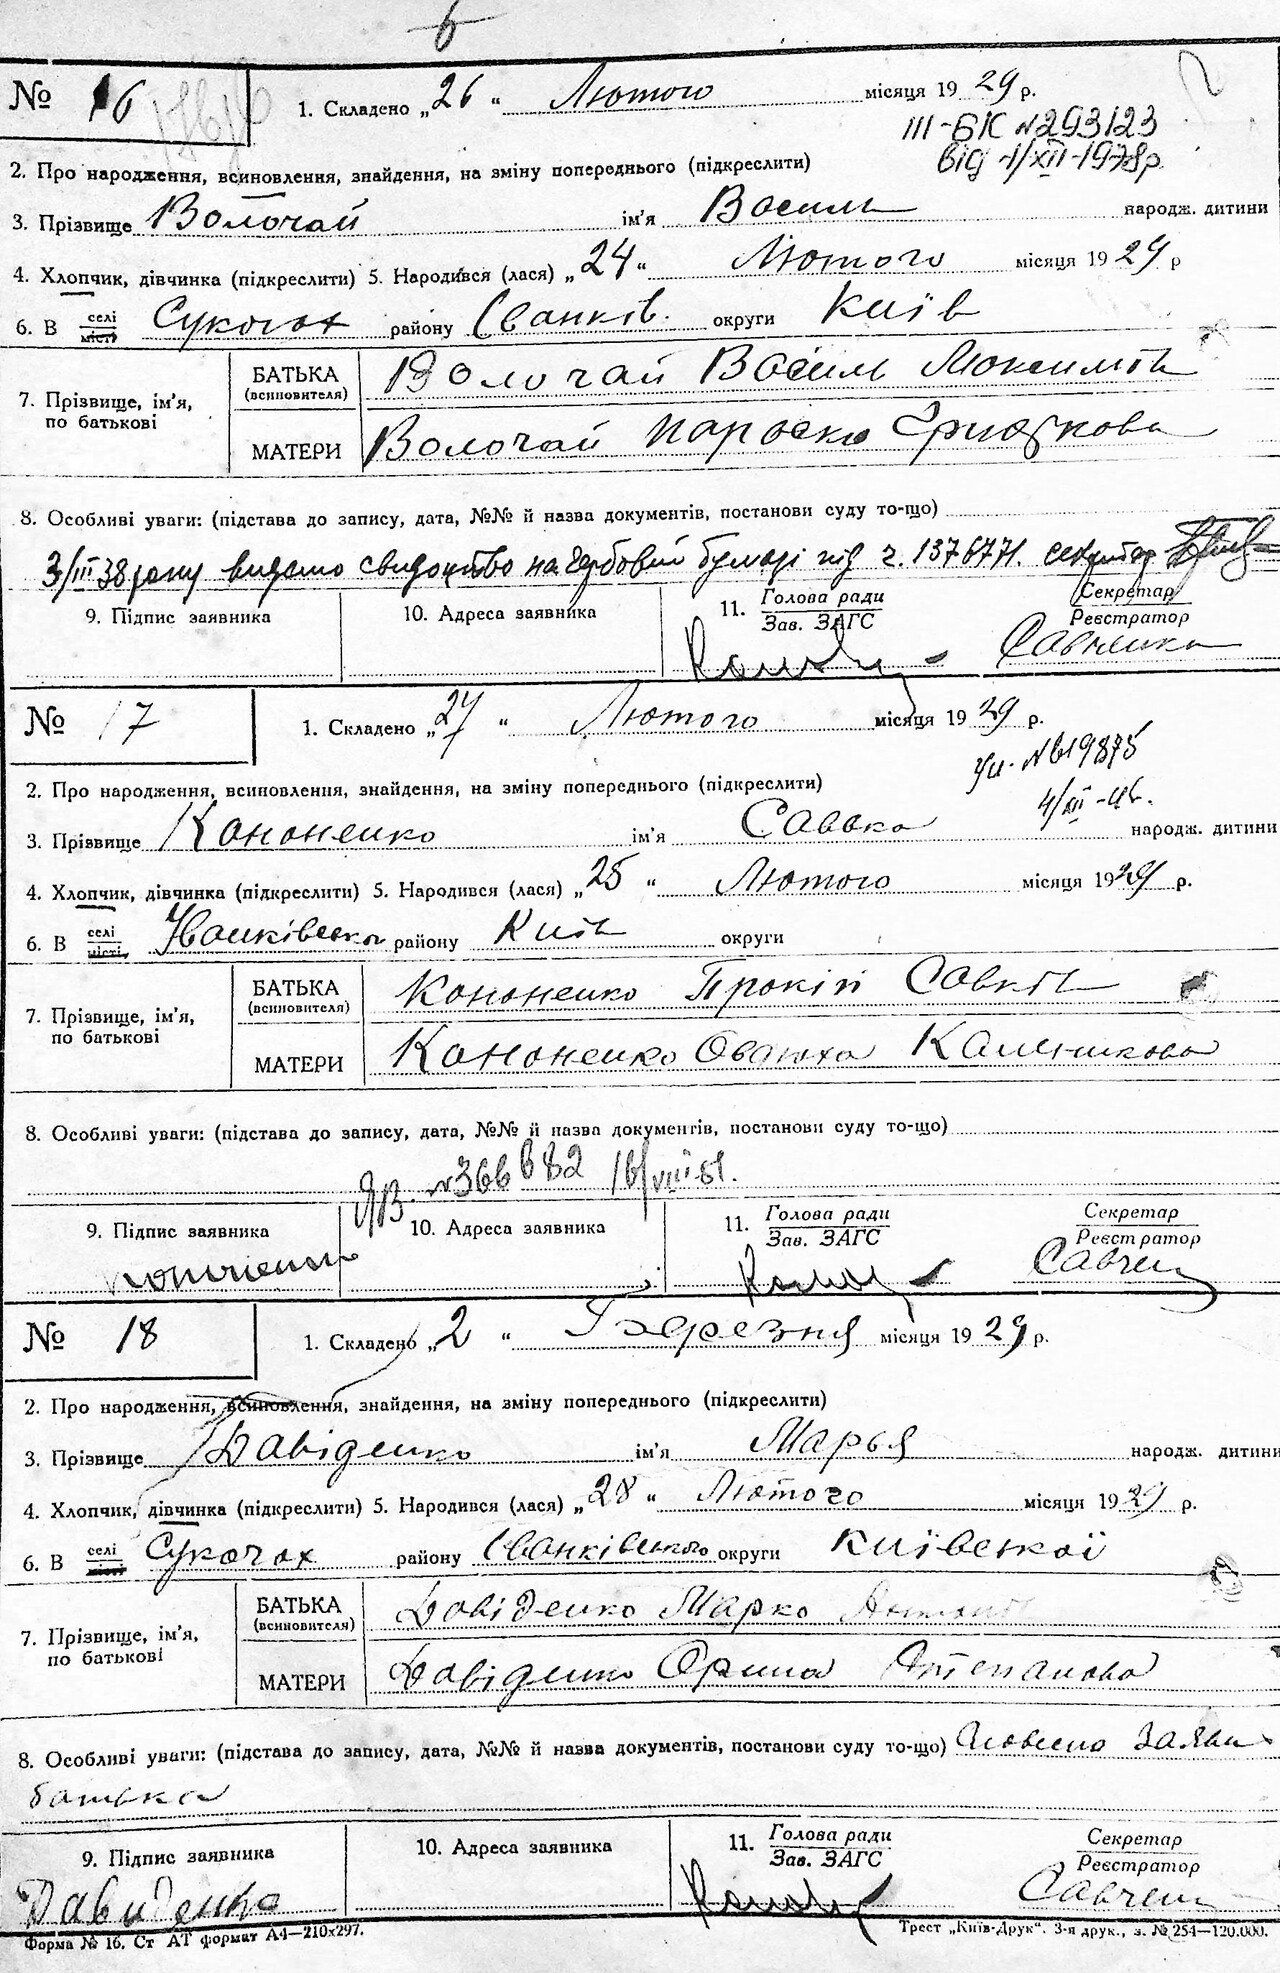 6
№ 16 1. Складено „26“ Лютого місяця 1929 р.
III-БК №293123
від 1/XII-1978р.
2. Про народження, всиновлення, знайдення, на зміну попереднього (підкреслити)
3. Прізвище Волочай ім'я Василь народж. дитини
4. Хлопчик, дівчинка (підкреслити) 5. Народився (лася) „24“ Лютого місяця 1929 р
6. В селі Сукочах району Іванків. округи Київ
місті
БАТЬКА Волочай Василь Максимів
(всиновителя)
7. Прізвище, ім'я,
по батькові
МАТЕРИ Волочай Параска
8. Особливі уваги: (підстава до запису, дата, №№ й назва документів, постанови суду то-що)
3/III 38 року видано свидоцтво на гербовій бумазі під ч. 1376771. секретар
9. Підпис заявника 10. Адреса заявника 11. Голова ради Секретар
Зав. ЗАГС Реєстратор
Савченко
№ 17 1. Складено „27“ Лютого місяця 1929 р.
№619875
2. Про народження, всиновлення, знайдення, на зміну попереднього (підкреслити)
3. Прізвище Кононенко ім'я Савка народж. дитини
4. Хлопчик, дівчинка (підкреслити) 5. Народився (лася) „25“ Лютого місяця 1929 р.
6. В селі Іванківська району Київ округи
місті
БАТЬКА Кононенко Прокіп Савків
(всиновителя)
7. Прізвище, ім'я,
по батькові
МАТЕРИ Кононенко Овдюха Каленикова
8. Особливі уваги: (підстава до запису, дата, №№ й назва документів, постанови суду то-що)
ЯВ №366682 16/VIII-51.
9. Підпис заявника 10. Адреса заявника 11. Голова ради Секретар
Зав. ЗАГС Реєстратор
Савчен
№ 18 1. Складено „2“ Березня місяця 1929 р.
2. Про народження, всиновлення, знайдення, на зміну попереднього (підкреслити)
3. Прізвище Давіденко ім'я Марья народж. дитини
4. Хлопчик, дівчинка (підкреслити) 5. Народився (лася) „28“ Лютого місяця 1929 р.
6. В селі Сукочах району Іванківського округи Київської
місті
БАТЬКА Давіденко Марко Антонів
(всиновителя)
7. Прізвище, ім'я,
по батькові
МАТЕРИ Давіденко Орина Степанова
8. Особливі уваги: (підстава до запису, дата, №№ й назва документів, постанови суду то-що) Словесно заява
батька
9. Підпис заявника 10. Адреса заявника 11. Голова ради Секретар
Зав. ЗАГС Реєстратор
Давиденко Савчен
Форма № 16. Ст АТ формат А4—210×297. Трест „Київ-Друк“. 3-я друк., з. № 254—120.000.